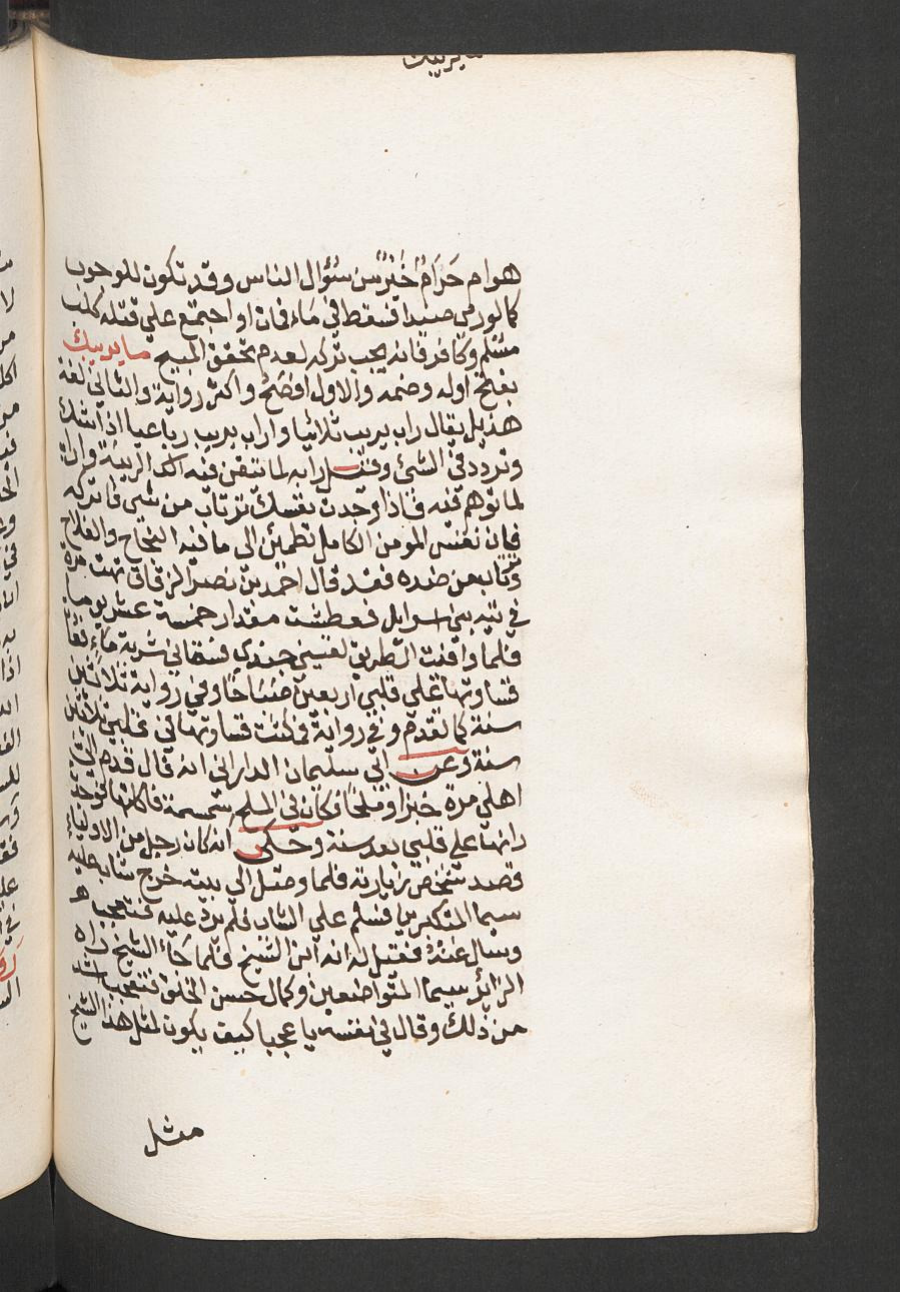 هو ام حَرَامٌ خَيْرٌ من سُؤال الناس وقد تكون للوجوب
كما لو رمي صيدا فسقط في ماء فان او اجتمع علي قتله كلب
مسلم وكافر فانه يجب تركه لعدم تحقق المبيح ما يريبك
بفتح اوله وضمه والاول افصح واكثر رواية والثاني لغة
هذيل يقال راب يريب ثلاثيا واراب يريب رباعيا اذا شك
وتردد في الشئ وقيل رابه لما تيقن فيه الريبة وارابه
لما توهم فيه فاذا وجدت نفسك ترتاب من شئ فاتركه
فان نفس المومن الكامل تطمئن الي ما فيه النجاح والفلاح
وترتاب من ضده فقد قال احمد بن نصر الزقاق تهت مرة
في تيه بني اسرايل فعطشت مقدار خمسة عشر يوما
فلما وافقت الطريق لقيني جندي فسقاني شربة ماء
قساوتها علي قلبي اربعين صباحا وفي رواية ثلاثين
سنة كما تقدم وفي رواية فمكثت قساوتها في قلبي ثلاثين
سنة وعن ابي سليمان الداراني انه قال قدم الي
اهلي مرة خبزا وملحا فكان في الملح سمسمة فاكلتها فوجدت
رانها علي قلبي بعد سنة وحكي انه كان رجل من الاولياء
فقصد شخص زيارته فلما وصل الي بيته خرج شاب عليه
سيما المتكبرين فسلم علي الشاب فلم يرد عليه فتعجب
وسال عنه فقيل له انه ابن الشيخ فلما جاء الشيخ راه
الزائر سيما المتواضعين وكمال حسن الخلق فتعجب اشد
من ذلك وقال في نفسه يا عجبا كيف يكون لمثل هذا الشيخ
مثل